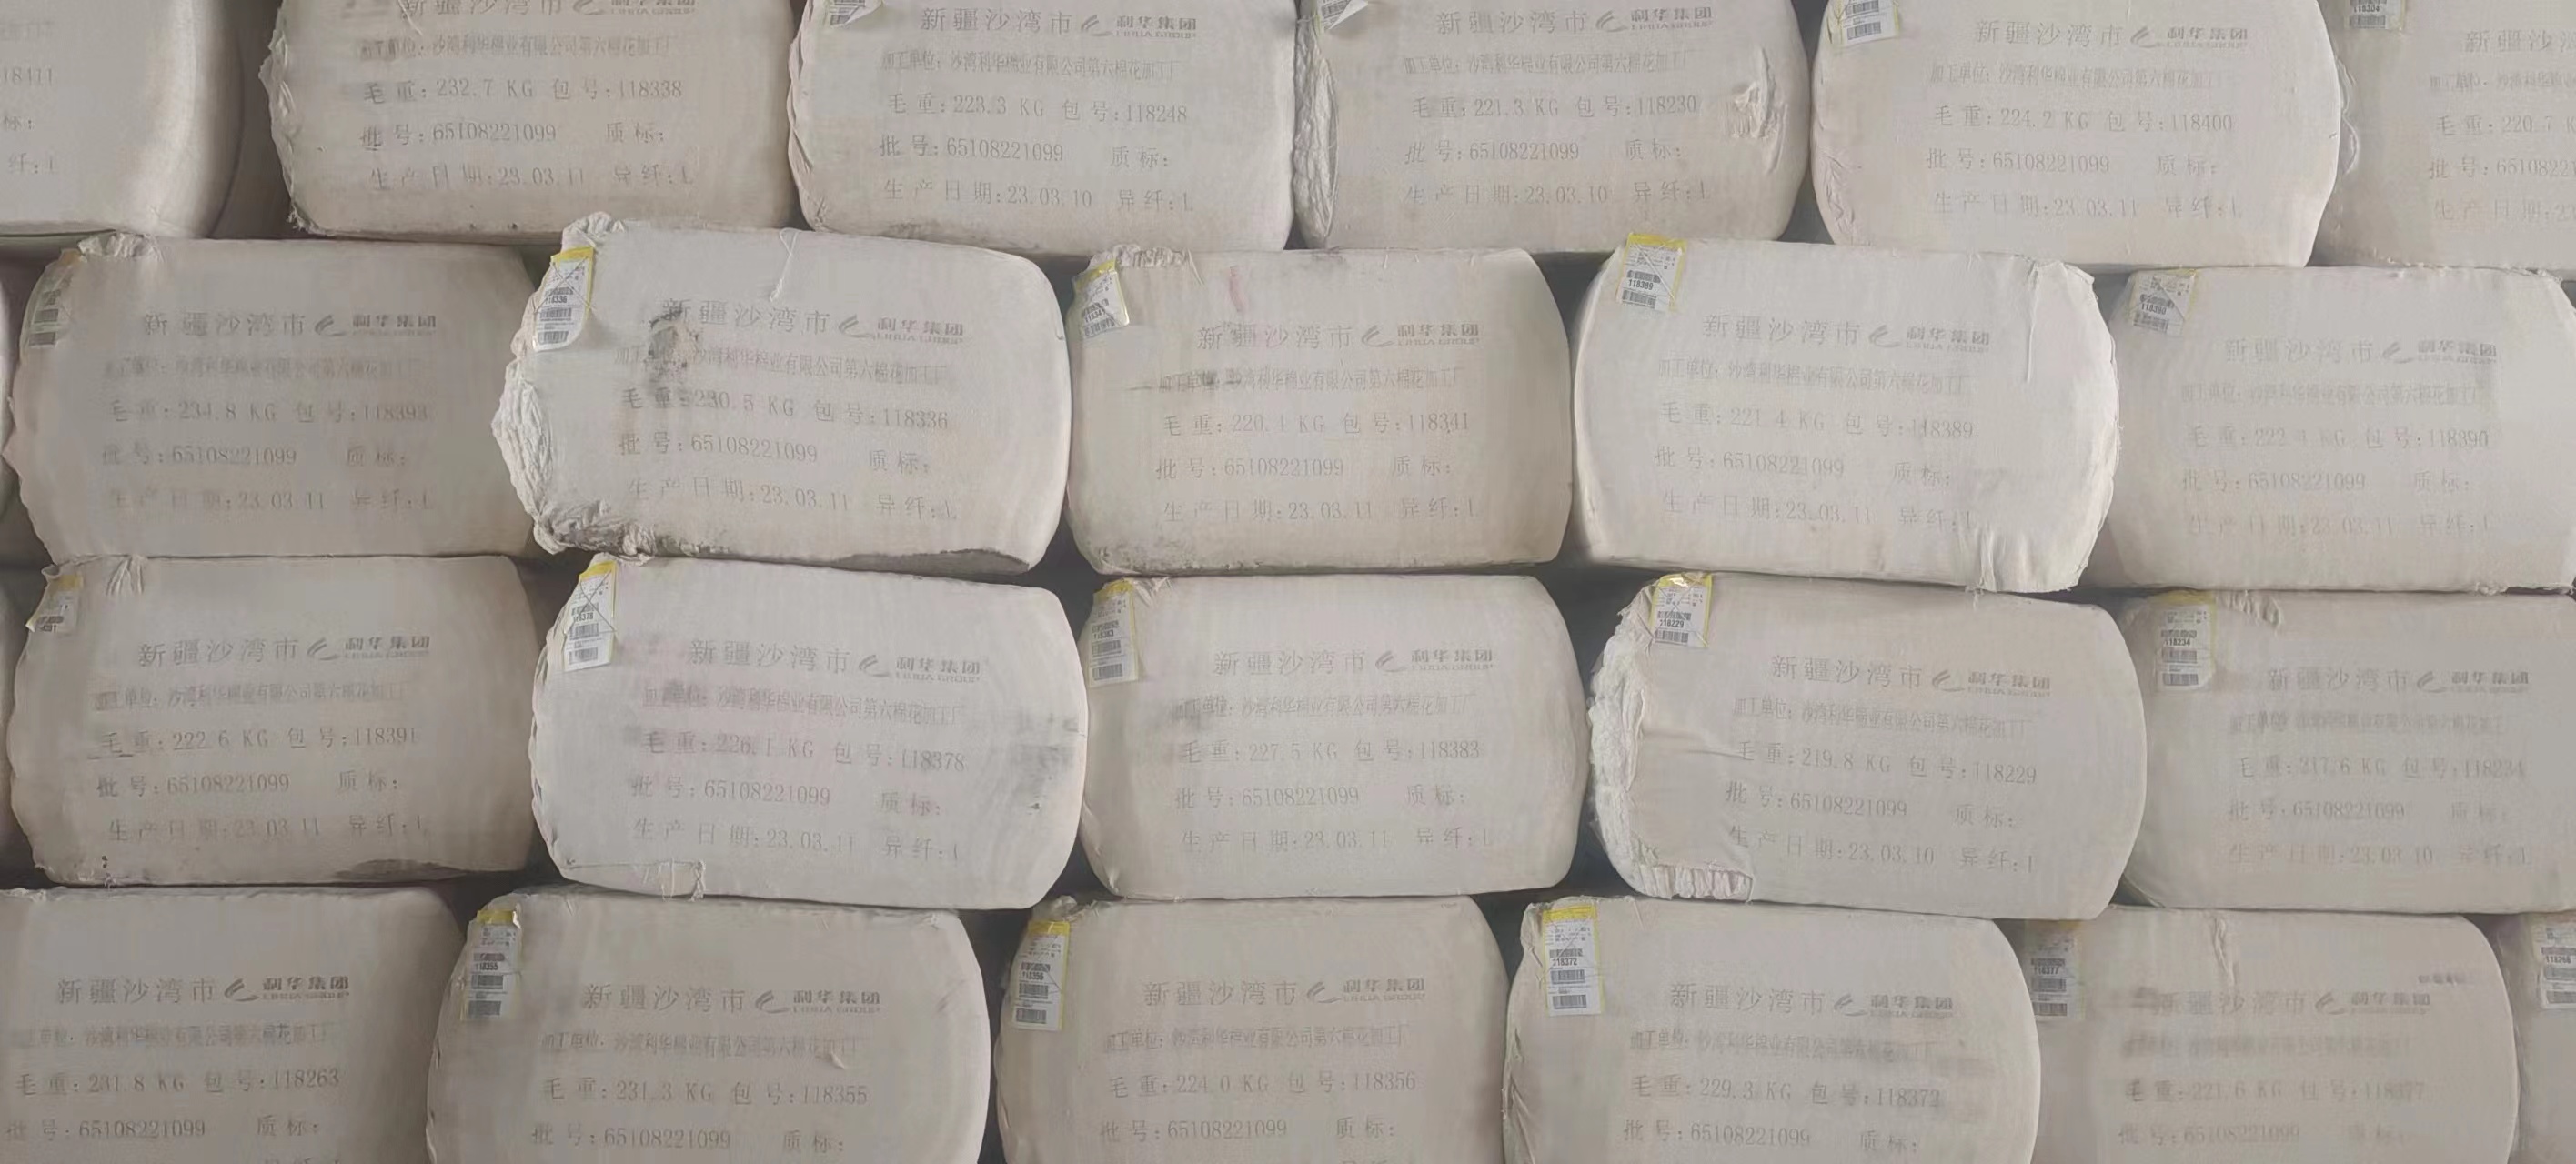 18411
标:
纤:L
利华集团
LIHUA GROUP
加工单位: 沙湾利华棉业有限公司第六棉花加工厂
毛重:232.7 KG 包号:118338
批号:65108221099 质标:
生产日期:23.03.11 异纤:L
新疆沙湾市 利华集团
LIHUA GROUP
加工单位: 沙湾利华棉业有限公司第六棉花加工厂
毛重:223.3 KG 包号:118248
批号:65108221099 质标:
生产日期:23.03.10 异纤:L
新疆沙湾市 利华集团
LIHUA GROUP
加工单位: 沙湾利华棉业有限公司第六棉花加工厂
毛重:221.3 KG 包号:118230
批号:65108221099 质标:
生产日期:23.03.10 异纤:L
新疆沙湾市 利华集团
LIHUA GROUP
加工单位: 沙湾利华棉业有限公司第六棉花加工厂
毛重:224.2 KG 包号:118400
批号:65108221099 质标:
生产日期:23.03.11 异纤:L
118304
新疆沙
毛重:220.7 K
批号:6510822
生产日期:2
新疆沙湾市 利华集团
LIHUA GROUP
加工单位: 沙湾利华棉业有限公司第六棉花加工厂
毛重:234.8 KG 包号:118393
批号:65108221099 质标:
生产日期:23.03.11 异纤:L
118336
新疆沙湾市 利华集团
LIHUA GROUP
加工单位: 沙湾利华棉业有限公司第六棉花加工厂
毛重:230.5 KG 包号:118336
批号:65108221099 质标:
生产日期:23.03.11 异纤:L
118341
新疆沙湾市 利华集团
LIHUA GROUP
加工单位: 沙湾利华棉业有限公司第六棉花加工厂
毛重:220.4 KG 包号:118341
批号:65108221099 质标:
生产日期:23.03.11 异纤:L
118389
新疆沙湾市 利华集团
LIHUA GROUP
加工单位: 沙湾利华棉业有限公司第六棉花加工厂
毛重:221.4 KG 包号:118389
批号:65108221099 质标:
生产日期:23.03.11 异纤:L
118390
新疆沙湾市 利华集团
LIHUA GROUP
加工单位: 沙湾利华棉业有限公司第六棉花加工厂
毛重:222.4 KG 包号:118390
批号:65108221099 质标:
生产日期:23.03.11 异纤:L
新疆沙湾市 利华集团
LIHUA GROUP
加工单位: 沙湾利华棉业有限公司第六棉花加工厂
毛重:222.6 KG 包号:118391
批号:65108221099 质标:
生产日期:23.03.11 异纤:L
118378
新疆沙湾市 利华集团
LIHUA GROUP
加工单位: 沙湾利华棉业有限公司第六棉花加工厂
毛重:226.1 KG 包号:118378
批号:65108221099 质标:
生产日期:23.03.11 异纤:L
118383
新疆沙湾市 利华集团
LIHUA GROUP
加工单位: 沙湾利华棉业有限公司第六棉花加工厂
毛重:227.5 KG 包号:118383
批号:65108221099 质标:
生产日期:23.03.11 异纤:L
118229
新疆沙湾市 利华集团
LIHUA GROUP
加工单位: 沙湾利华棉业有限公司第六棉花加工厂
毛重:219.8 KG 包号:118229
批号:65108221099 质标:
生产日期:23.03.10 异纤:L
118234
新疆沙湾市 利华集团
LIHUA GROUP
加工单位: 沙湾利华棉业有限公司第六棉花加工厂
毛重:217.6 KG 包号:118234
批号:65108221099 质标:
生产日期:23.03.10 异纤:L
新疆沙湾市 利华集团
LIHUA GROUP
加工单位: 沙湾利华棉业有限公司第六棉花加工厂
毛重:231.8 KG 包号:118263
批号:65108221099 质标:
118355
新疆沙湾市 利华集团
LIHUA GROUP
加工单位: 沙湾利华棉业有限公司第六棉花加工厂
毛重:231.3 KG 包号:118355
批号:65108221099 质标:
118356
新疆沙湾市 利华集团
LIHUA GROUP
加工单位: 沙湾利华棉业有限公司第六棉花加工厂
毛重:224.0 KG 包号:118356
批号:65108221099 质标:
118372
新疆沙湾市 利华集团
LIHUA GROUP
加工单位: 沙湾利华棉业有限公司第六棉花加工厂
毛重:229.3 KG 包号:118372
批号:65108221099 质标:
118377
新疆沙湾市 利华集团
LIHUA GROUP
加工单位: 沙湾利华棉业有限公司第六棉花加工厂
毛重:221.6 KG 包号:118377
批号:65108221099 质标:
118268